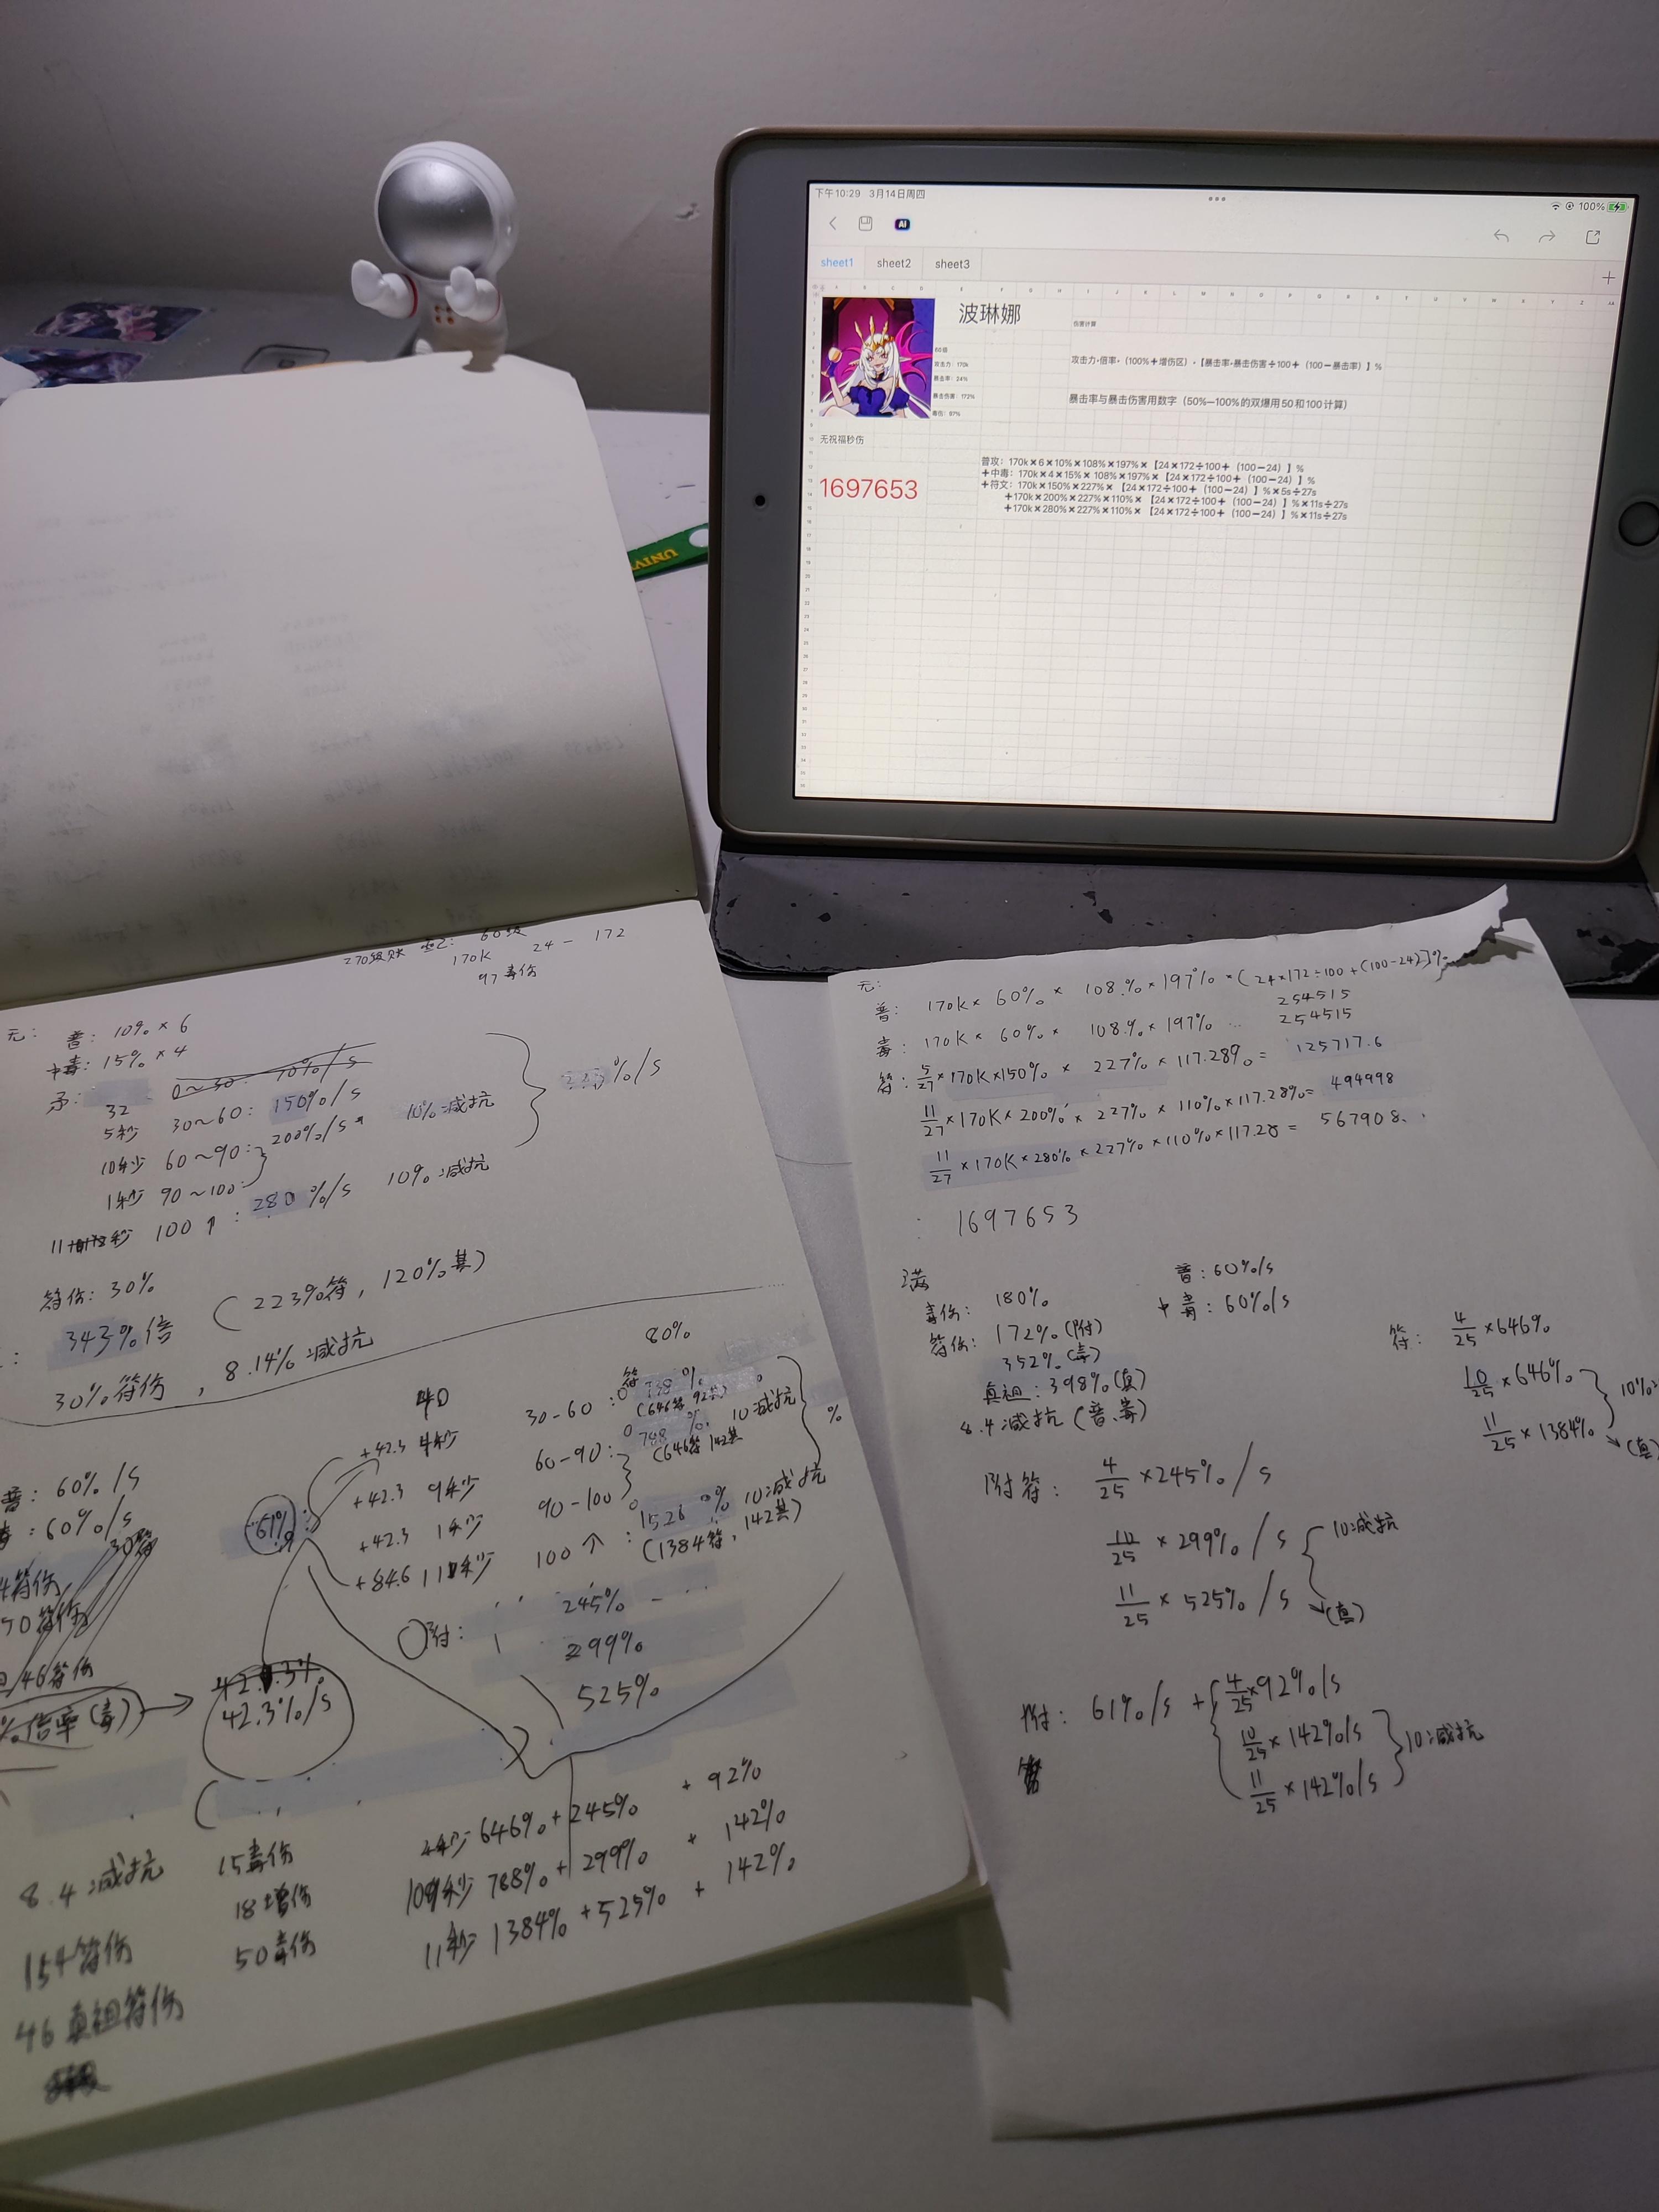 下午10:29 3月14日周四
100%
AI
sheet1 sheet2 sheet3
波琳娜
伤害计算
60级
攻击力：170k
暴击率：24%
暴击伤害：172%
毒伤：97%
攻击力*倍率*（100%+增伤区）*【暴击率*暴击伤害÷100+（100-暴击率）】%
暴击率与暴击伤害用数字（50%—100%的双爆用50和100计算）
无祝福秒伤
1697653
普攻：170k×6×10%×108%×197%×【24×172÷100+（100-24）】%
+中毒：170k×4×15%×108%×197%×【24×172÷100+（100-24）】%
+符文：170k×150%×227%×【24×172÷100+（100-24）】%×5s÷27s
+170k×200%×227%×110%×【24×172÷100+（100-24）】%×11s÷27s
+170k×280%×227%×110%×【24×172÷100+（100-24）】%×11s÷27s
UNIV
60级
170K 24 - 172
97毒伤
无： 普：10%×6
中毒：15%×4
32 0~30: 70%/s
5秒 30~60: 150%/s
10秒 60~90: 200%/s 10%减抗
1秒 90~100:
11秒 100↑: 280%/s 10%减抗
%/s
符伤：30%
343%倍 (223%符，120%其)
30%符伤，8.14%减抗
80%
+42.3 4秒 30-60: 738%
(646符 92其)
+42.3 9秒 60-90: 788% 10减抗
(646符 142其
+42.3 1秒 90-100
+84.6 11秒 100↑: 1526% 10减抗
(1384符，142其)
%
61%
普：60%/s
毒：60%/s
符伤
50符伤
46符伤
%倍率(毒) → 42.3%/s
附： 245%
299%
525%
8.4减抗 15毒伤
154符伤 18增伤
46真祖符伤 50毒伤
4秒 646%+245% + 92%
10秒 788%+299% + 142%
11秒 1384%+525% + 142%
无：
普： 170K×60%×108%×197%×(24×172÷100+(100-24)]%
254515
毒： 170K×60%×108%×197% 254515
符： 5/27×170K×150%×227%×117.28%= 125717.6
11/27×170K×200%×227%×110%×117.28%= 494998
11/27×170K×280%×227%×110%×117.28= 567908
1697653
满
毒伤： 180%
符伤： 172%(附)
352%(毒)
真祖：398%(真)
8.4减抗(普、毒)
普：60%/s
中毒：60%/s
符： 4/25×646%
10/25×646%
11/25×1384% (真)
10%
附符： 4/25×245%/s
10/25×299%/s 10减抗
11/25×525%/s (真)
附： 61%/s + 4/25×92%/s
10/25×142%/s 10减抗
11/25×142%/s